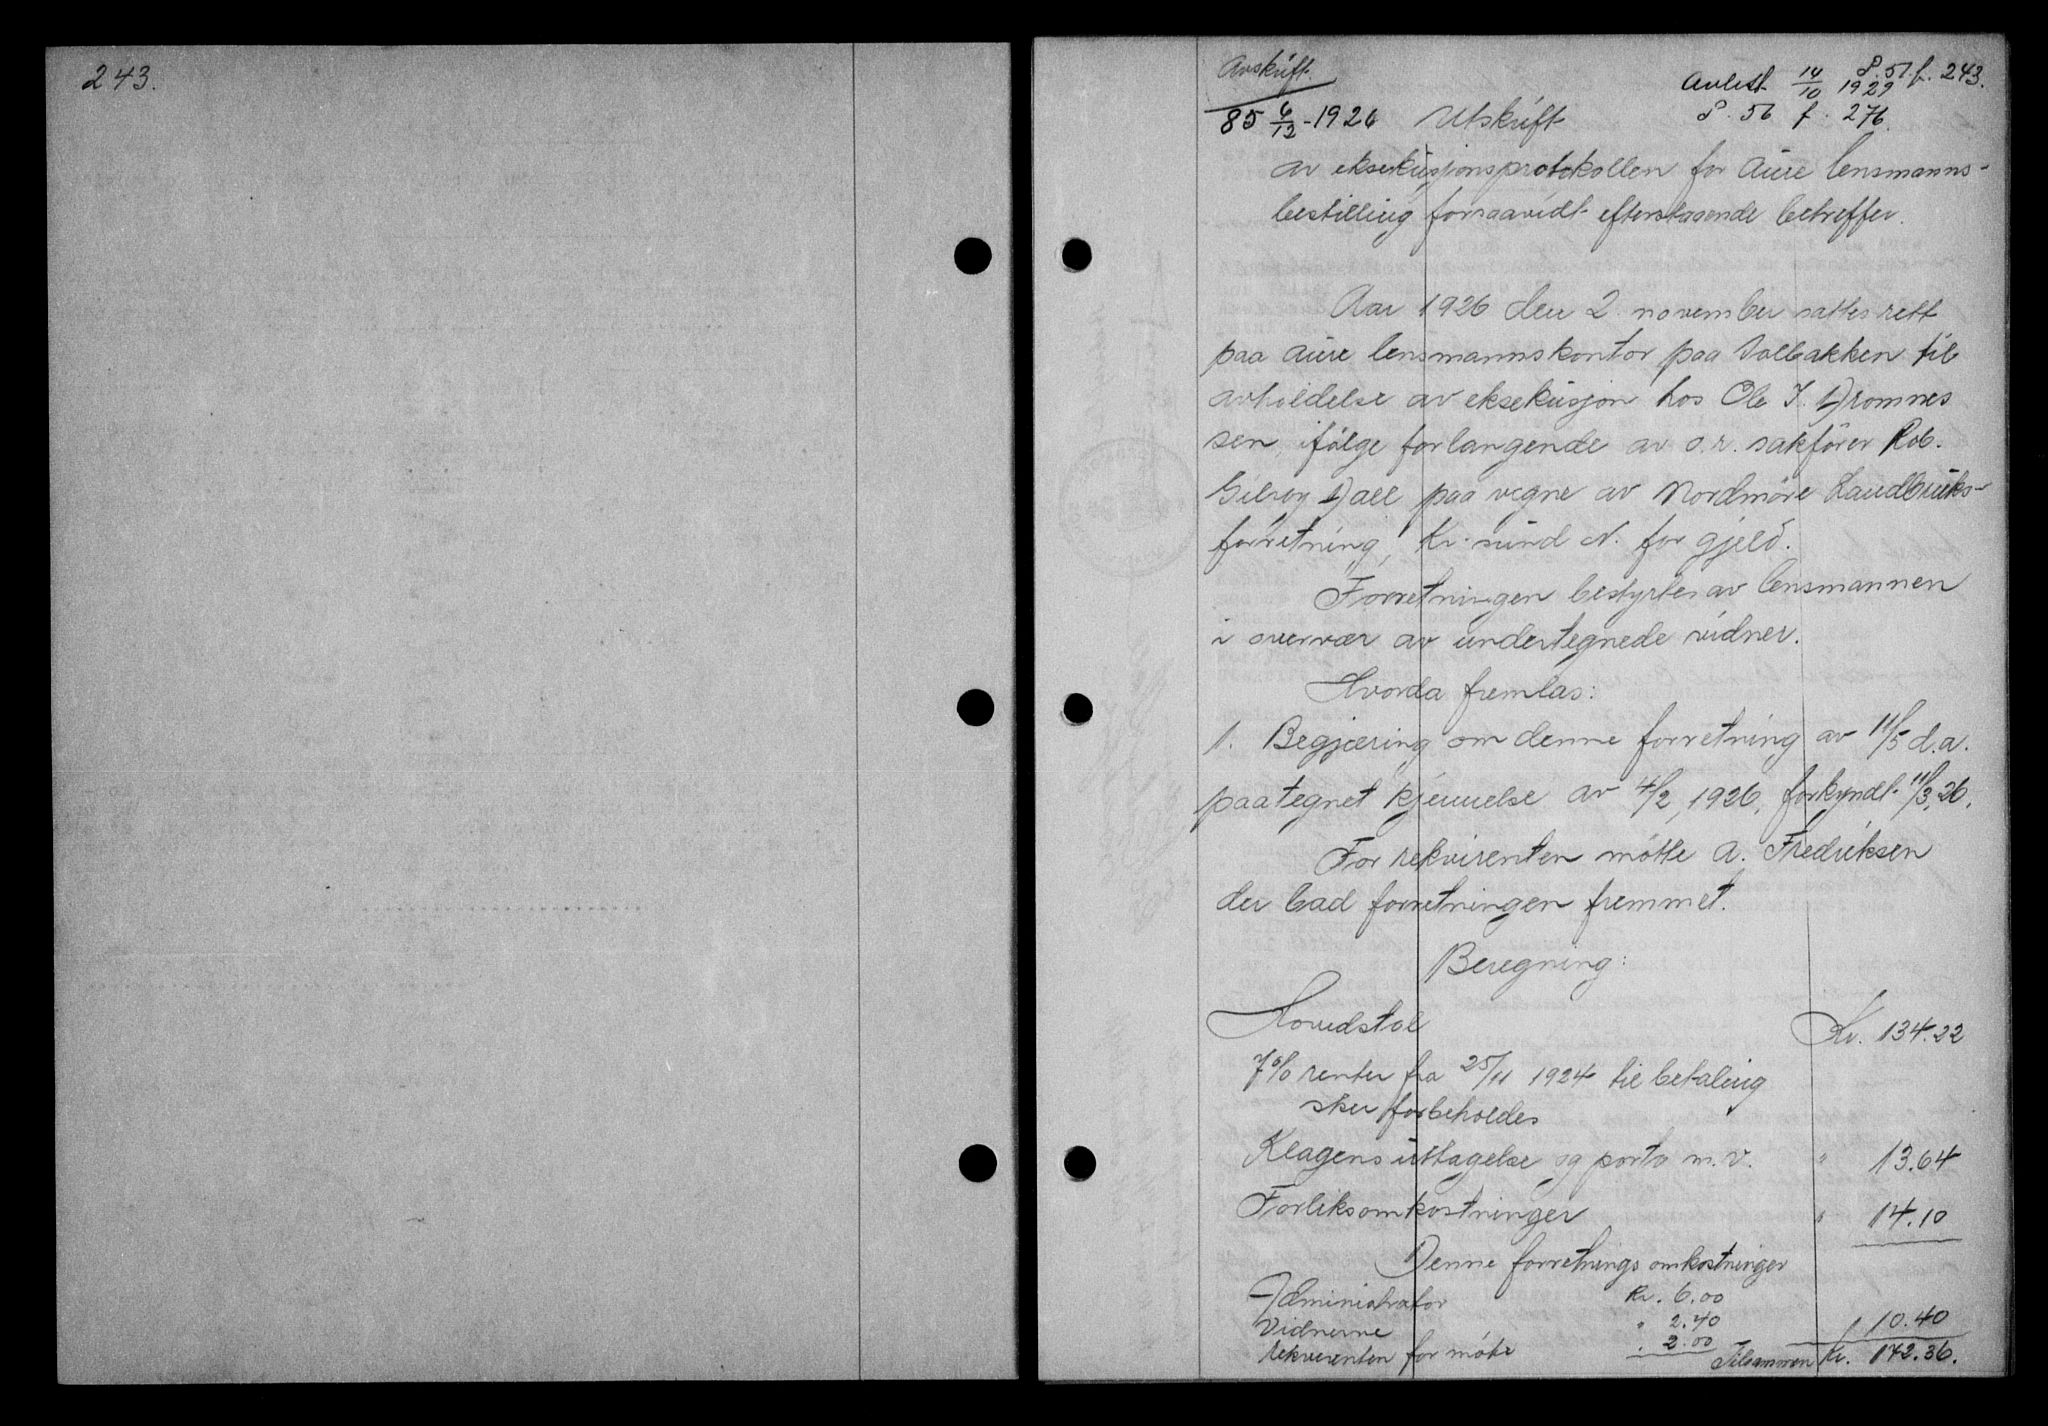 243.
Avskrift.
85 6/12-1926
P. 57. f. 243.
Avlest 14/10 1929
P. 56 f. 276.
Utskrift
av eksekusjonsprotokollen for Aure lensmanns-
bestilling forsaavidt efterstaaende betreffer.
Aar 1926 den 2. november sattes rett
paa Aure lensmannskontor paa Solbakken til
avholdelse av eksekusjon hos Ole I. Dromnes
sen, ifølge forlangende av o.r. sakfører Rob.
Gilroy Dall paa vegne av Nordmøre Landbruks-
forretning, Kr.sund N. for gjeld.
Forretningen bestyrtes av lensmannen
i overvær av undertegnede vidner.
Hvorda fremlas:
1. Begjæring om denne forretning av 11/5 d.a.
paategnet kjennelse av 4/2, 1926, forkyndt 11/3, 26.
For rekvirenten møtte A. Fredriksen
der bad forretningen fremmet.
Beregning:
Hovedstol Kr. 134.22
7% renter fra 25/11 1924 til betaling
sker forbeholdes
Klagens uttagelse og porto m.v. " 13.64
Forliksomkostninger " 14.10
Denne forretnings omkostninger
Administrator Kr. 6.00
Vidnerne " 2.40 " 10.40
rekvirenten for møte " 2.00 Tilsammen Kr. 172.36.